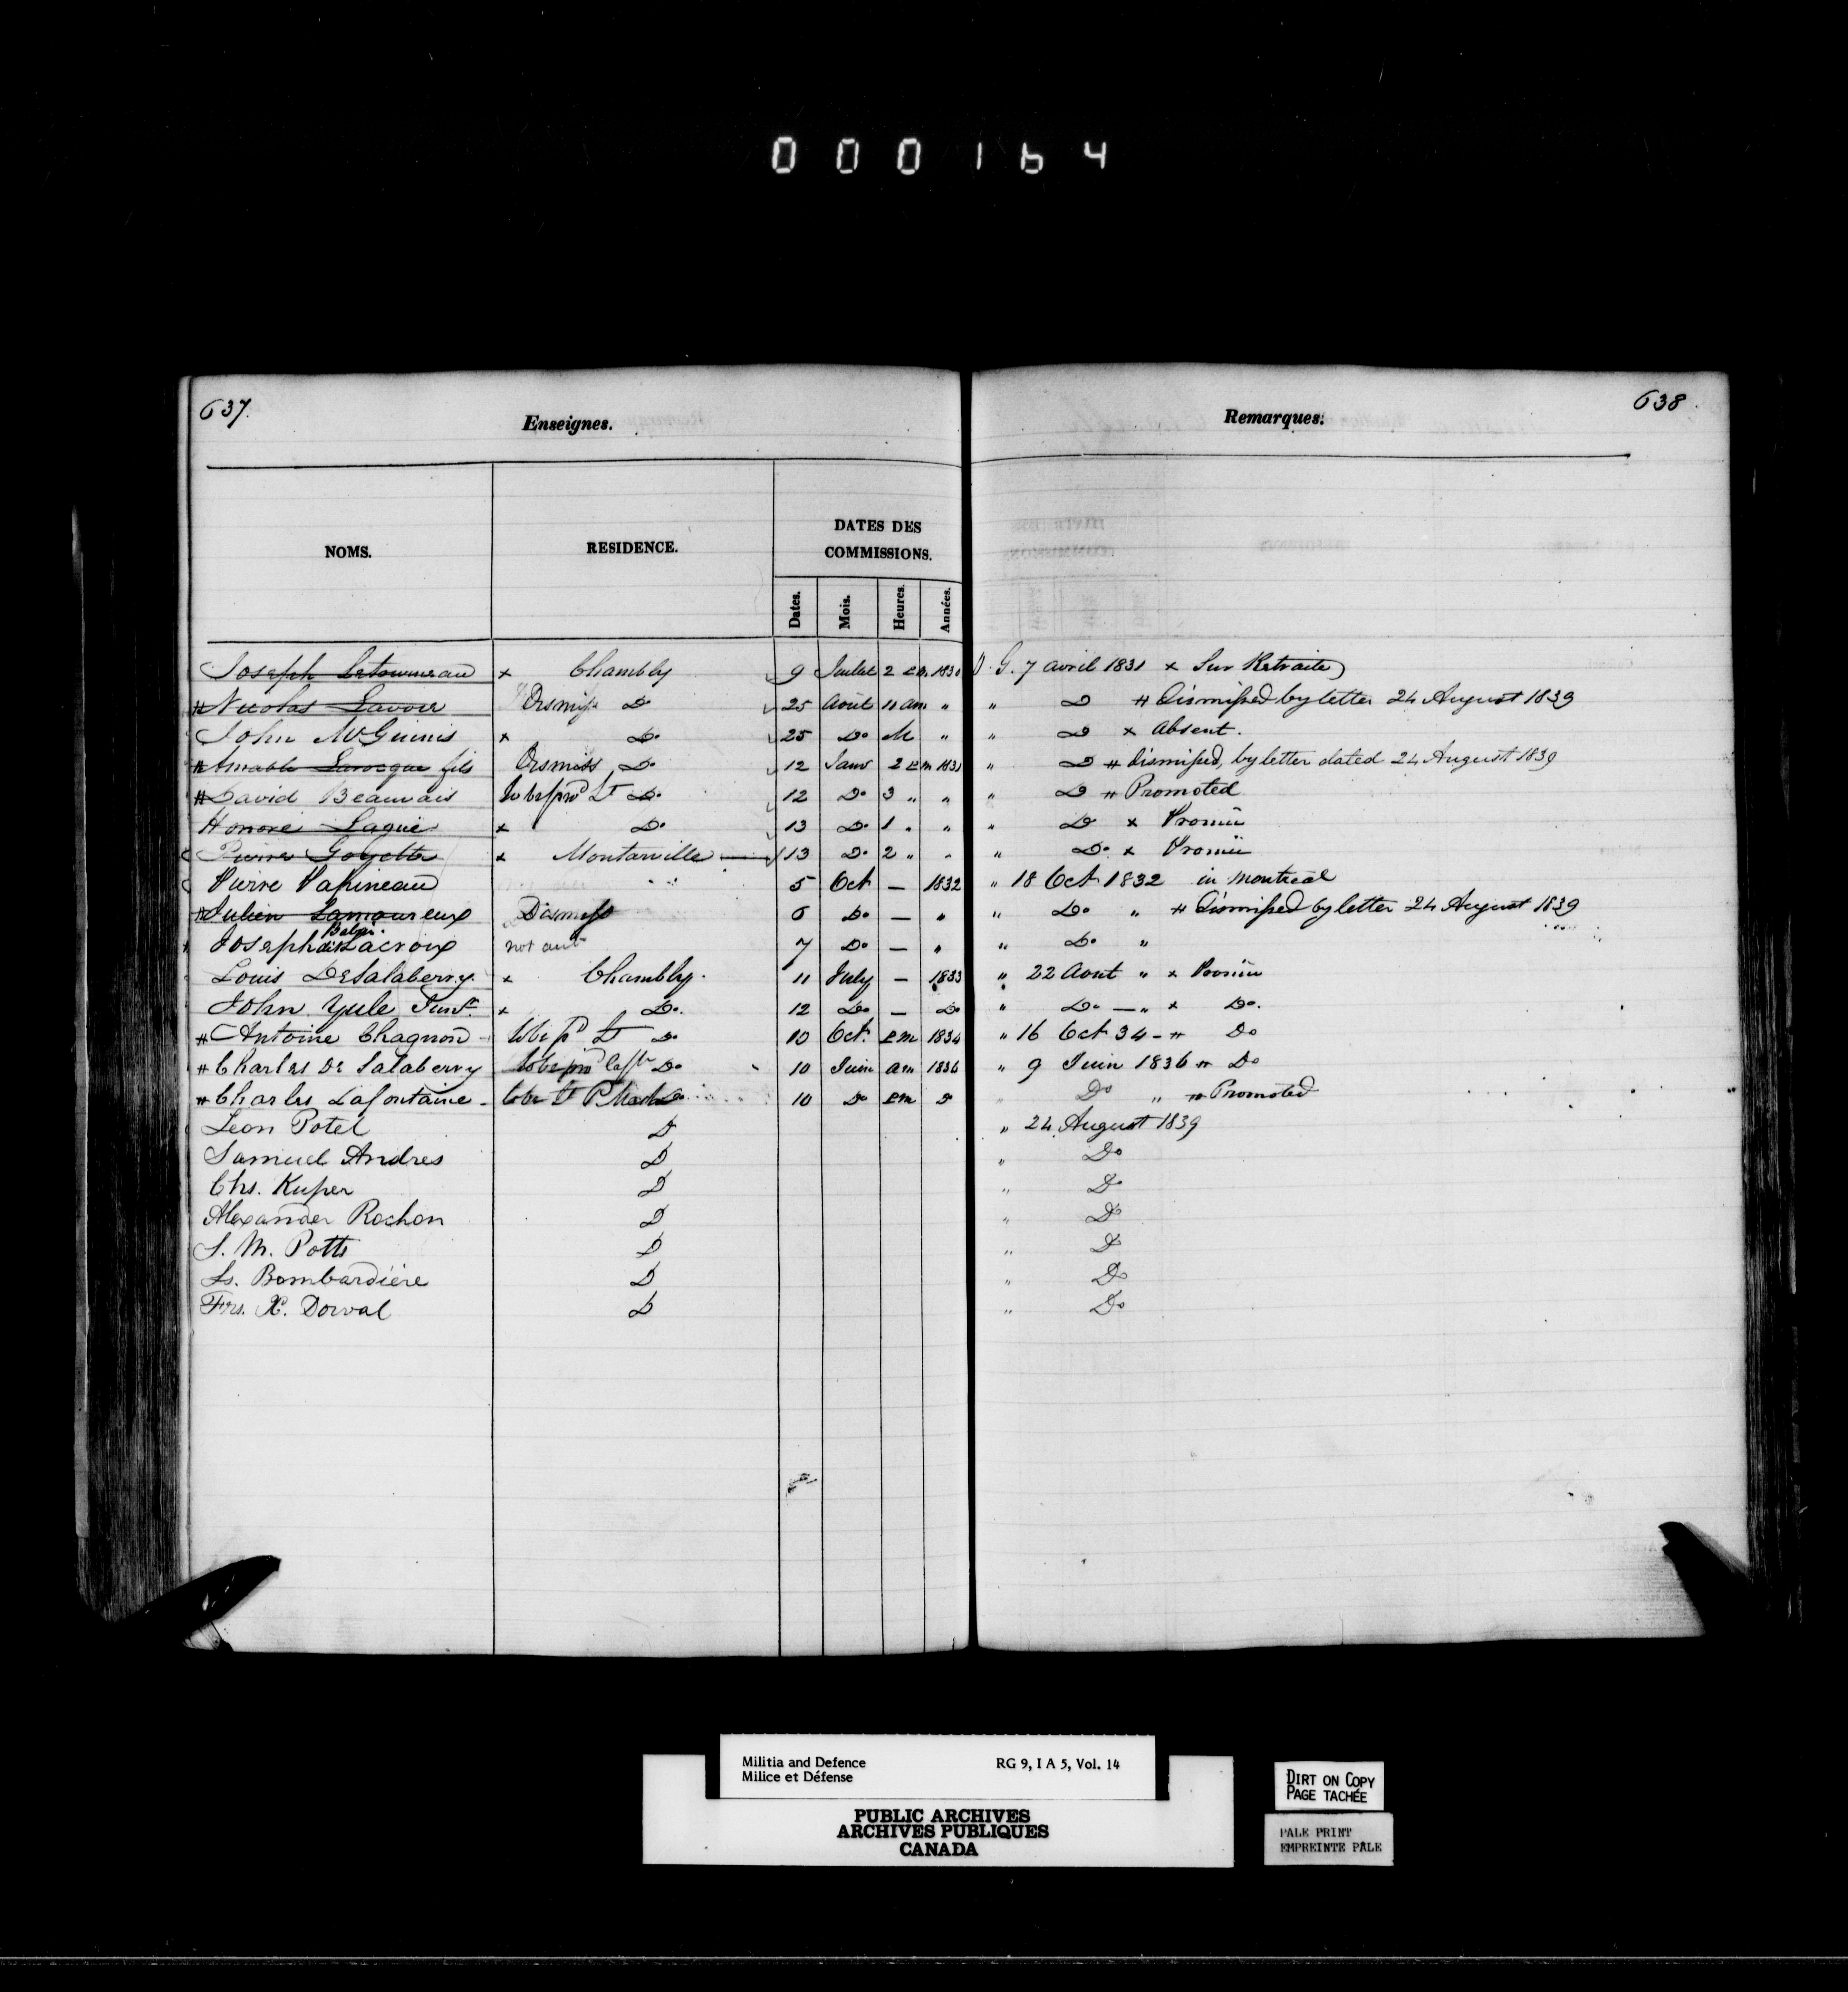 000164
637.
Enseignes.
Remarques.
638.
NOMS.
RESIDENCE.
DATES DES
COMMISSIONS.
Dates.
Mois.
Heures.
Années.
Joseph Letourneau x Chambly 9 Juillet 2 P.M. 1830 O. G. 7 avril 1831 x Sur Retraite
# Nicolas Lavoie Dismiss Do 25 Août 11 am " " Do # Dismissed by letter 24 August 1839
John McGinnis x Do 25 Do M " " Do x absent.
# Amable Larocque fils Dismiss Do 12 Janv 2 P.M 1831 " Do # Dismissed, by letter dated 24 August 1839
# David Beauvais to be prod Lt Do 12 Do 3 " " " Do # Promoted
Honoré Laguë x Do 13 Do 1 " " " Do x Promû
Pierre Goyette x Montarville 13 Do 2 " " " Do x Promû
Pierre Papineau 5 Oct — 1832 " 18 Oct 1832 in Montreal
# Julien Lamoureux Dismiss 6 Do — " " Do " # Dismissed by letter 24 August 1839
Joseph dit Lacroix 7 Do — " " Do "
Louis DeSalaberry x Chambly. 11 July — 1833 " 22 Aout " x Promû
John Yule Junr. x Do. 12 Do — Do " Do — " x Do.
# Antoine Chagnon to be pd Lt Do 10 Oct. P.M 1834 " 16 Oct 34 - # Do
# Charles De Salaberry to be prod Do 10 Juin am 1836 " 9 Juin 1836 # Do
# Charles Lafontaine Do 10 Do P.M Do Do " # Promoted
Leon Potel D " 24 August 1839
Samuel Andres D " Do
Chs. Kuper D " Do
Alexander Rochon D " Do
S. M. Potts D " Do
Ls. Bombardiére D " Do
Frs. X. Dorval D " Do
Militia and Defence RG 9, I A 5, Vol. 14
Milice et Défense
PUBLIC ARCHIVES
ARCHIVES PUBLIQUES
CANADA
DIRT ON COPY
PAGE TACHÉE
PALE PRINT
EMPREINTE PÂLE